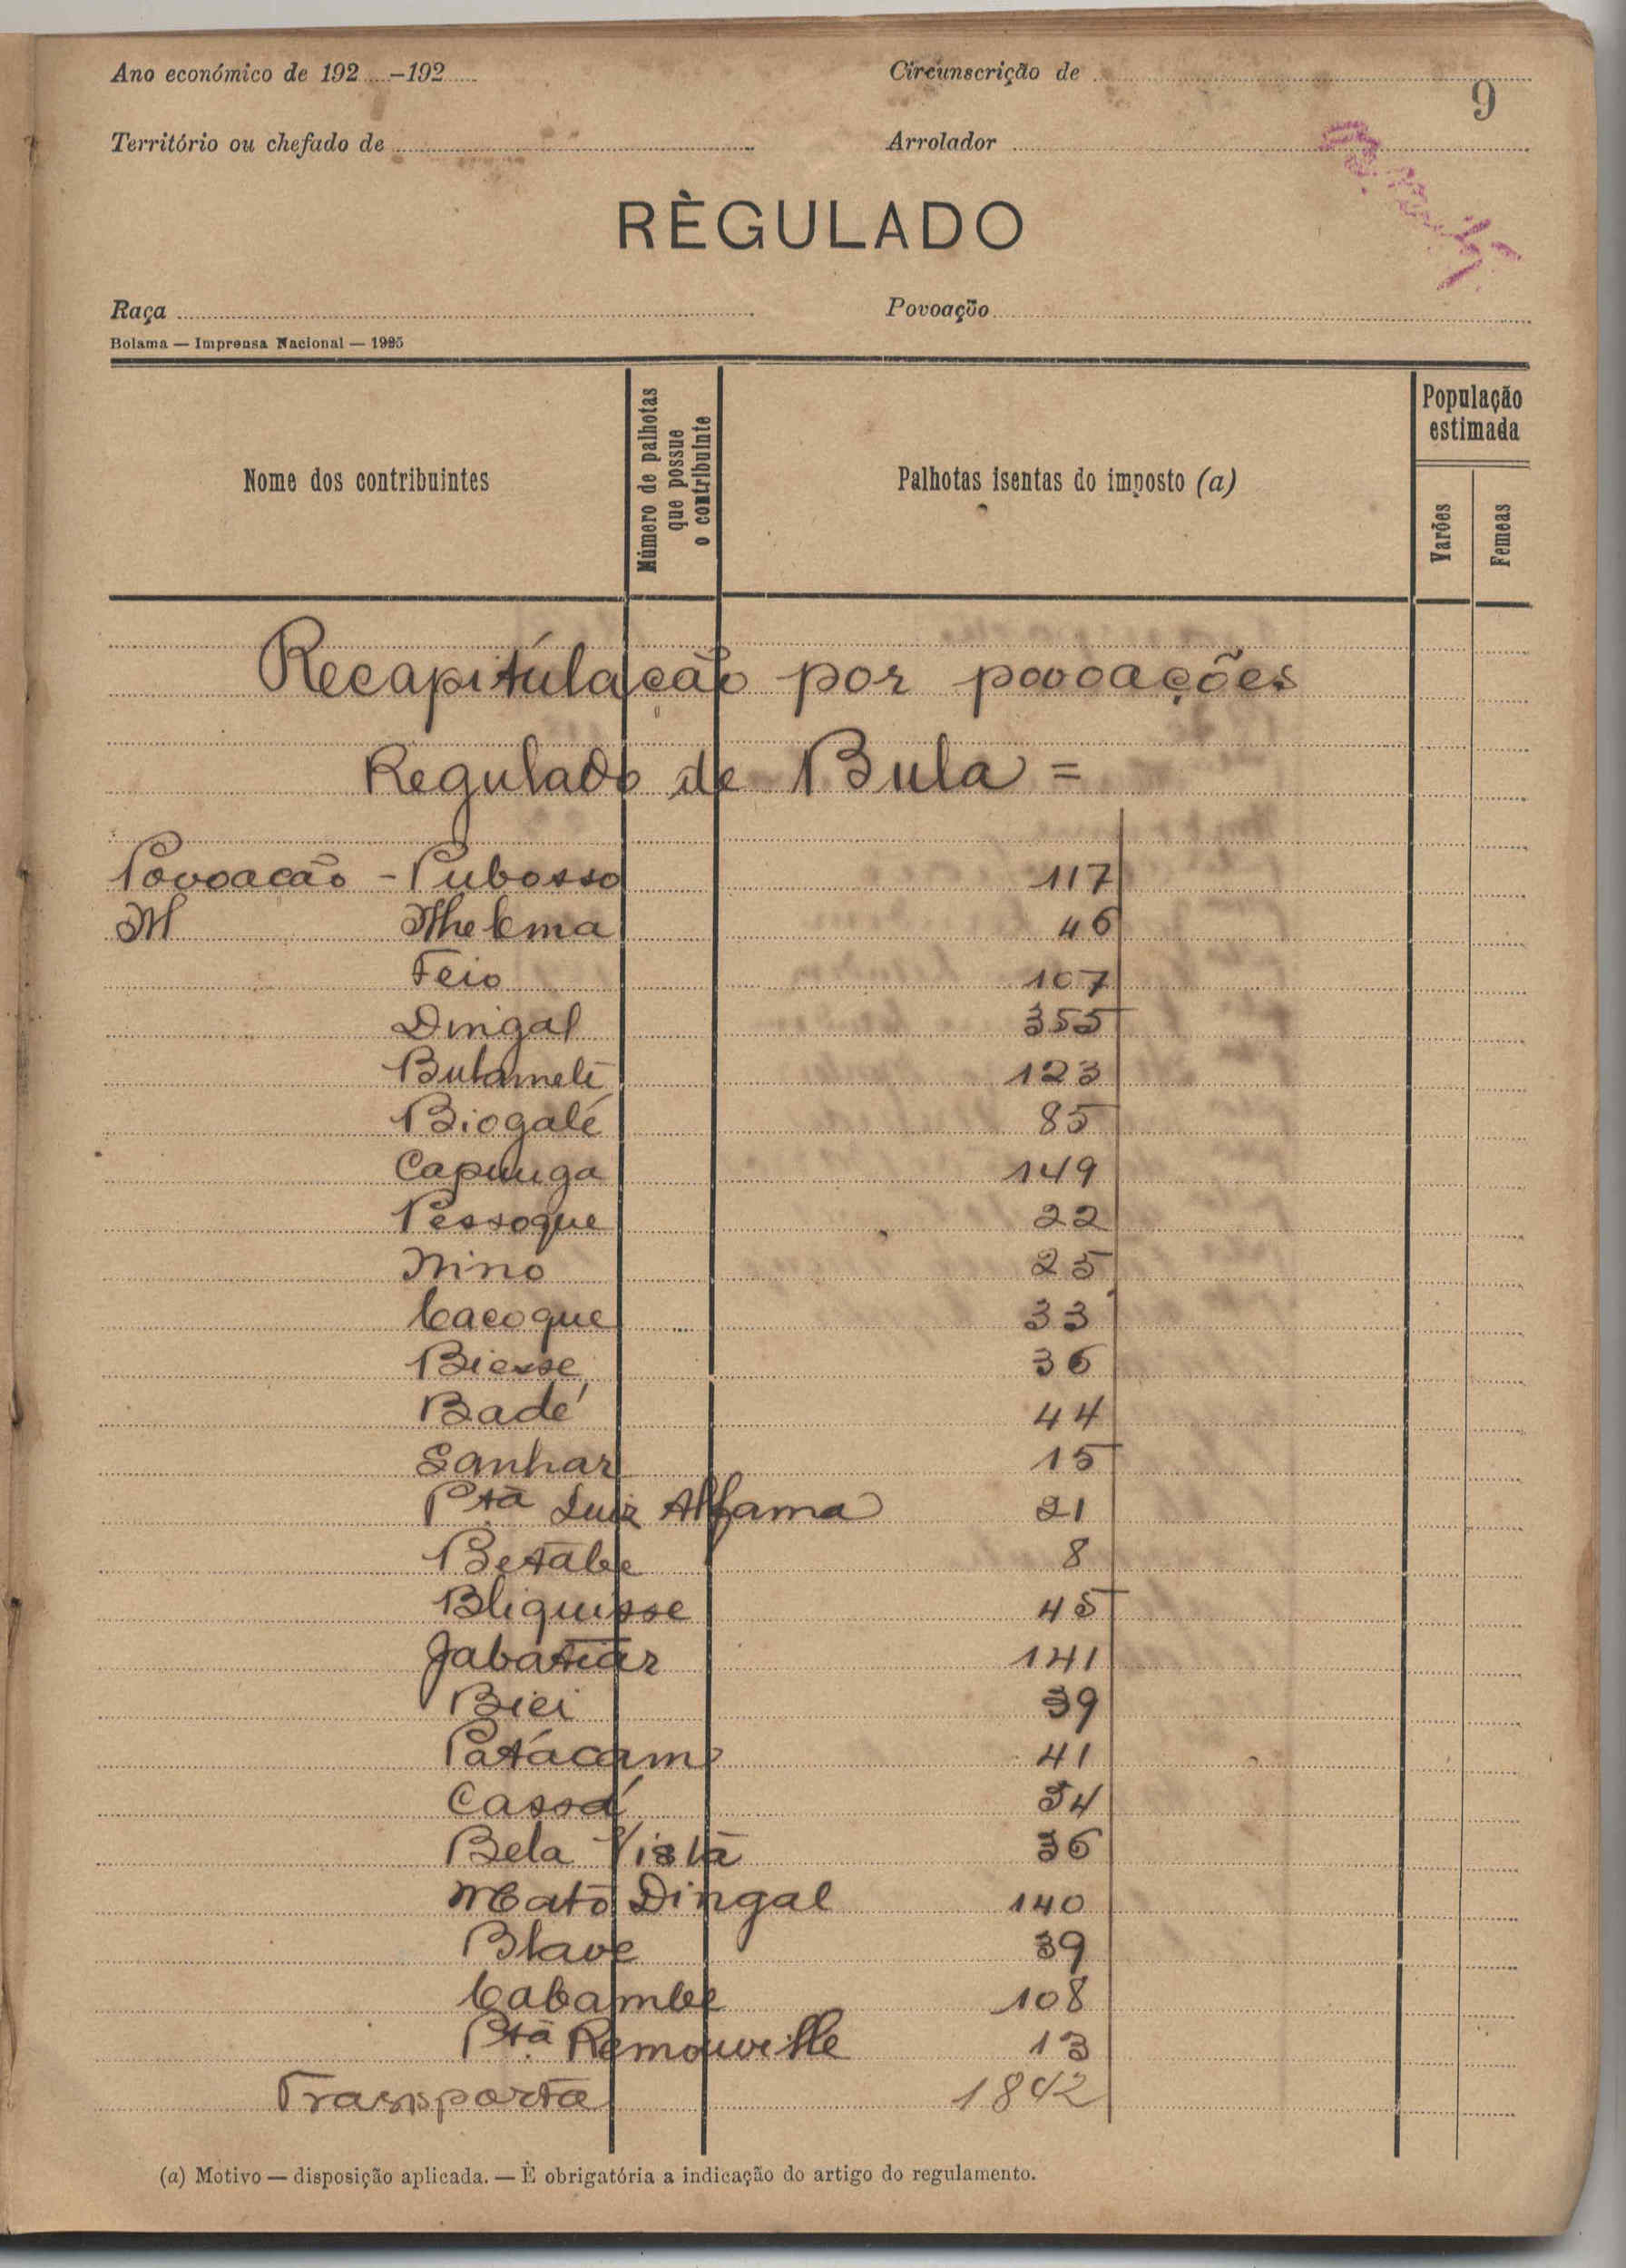 Ano económico de 192.....–192.....
Circunscrição de
9
Território ou chefado de
Arrolador
RÈGULADO
Raça
Povoação
Bolama — Imprensa Nacional — 1925
Nome dos contribuintes
Número de palhotas que possue o contribuinte
Palhotas isentas do imposto (a)
População estimada
Varões
Femeas
Recapitulação por povoações
Regulado de Bula =
Povoação - Pubosso 117
46
Feio 107
Dingal 355
Bulameti 123
Biogalé 85
Capunga 149
Pessoque 22
Nino 25
Cacoque 33
Biesse 36
Badé 44
Sanhar 15
Ptª Luiz Alfama 21
Betabe 8
Bliquisse 45
Jabatiar 141
Biei 39
Patácamo 41
Cassá 34
Bela Vista 36
Mato Dingal 140
Blave 39
Cabambe 108
Ptª Remouville 13
Transporta 1842
(a) Motivo — disposição aplicada. — È obrigatória a indicação do artigo do regulamento.